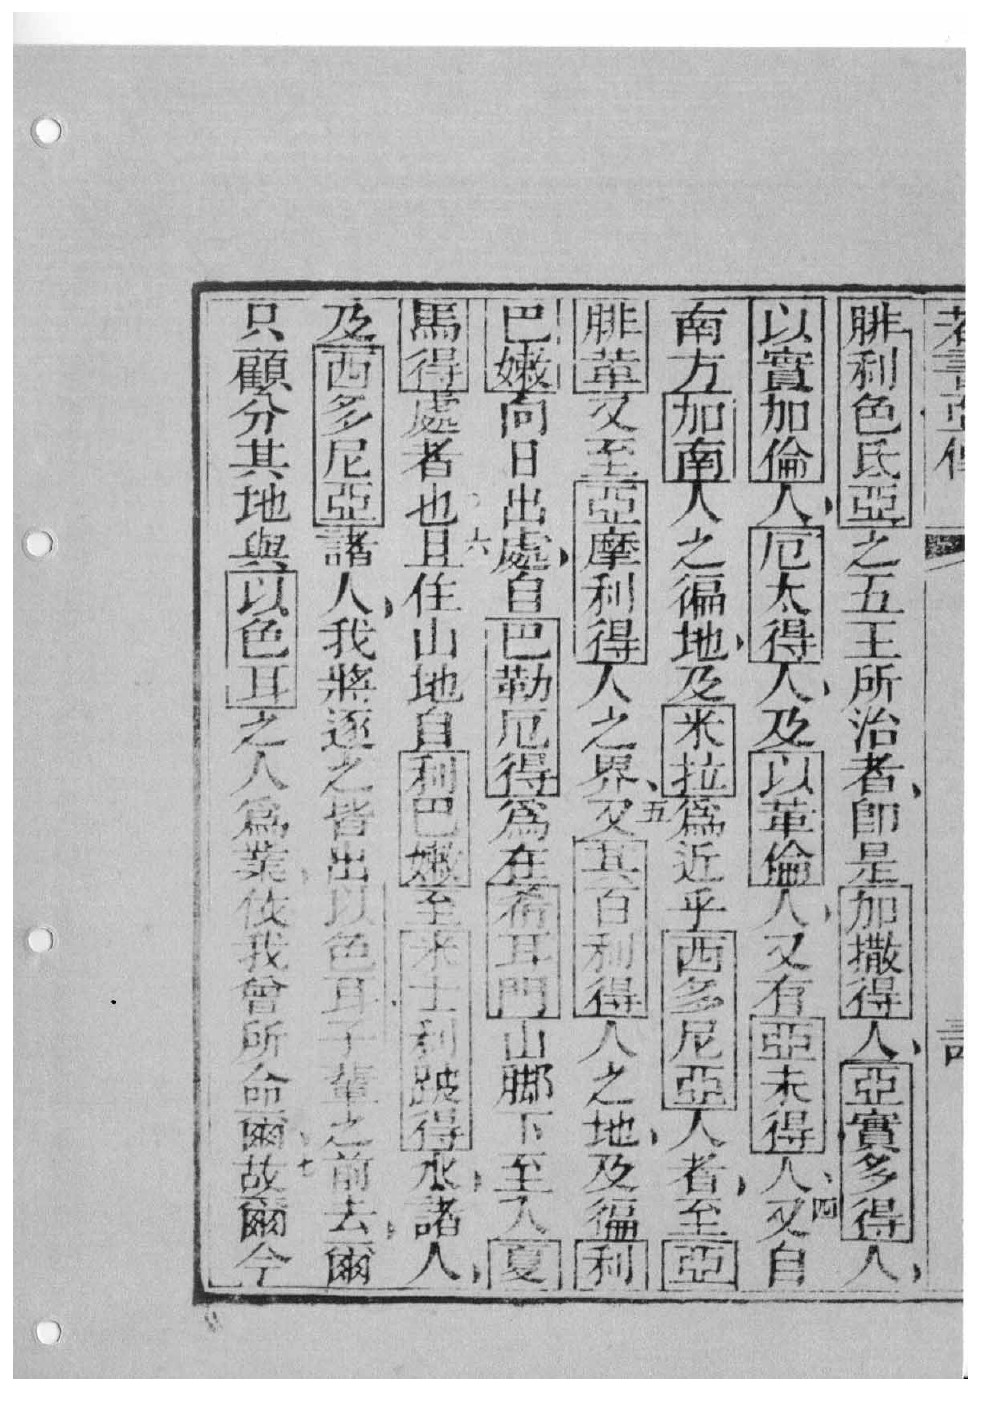 若書亞傳
腓利色氏亞之五王所治者、卽是加撒得人、亞實多得人、
以實加倫人、厄太得人、及以革倫人、又有亞未得人、四又自
南方加南人之徧地、及米拉爲近乎西多尼亞人者、至亞
腓革又至亞摩利得人之界、五又其百利得人之地、及徧利
巴嫩向日出處、自巴勒厄得爲在希耳門山腳下至入夏
馬得處者也。六且住山地自利巴嫩至米士利跛得水諸人、
及西多尼亞諸人、我將逐之皆出以色耳子輩之前去、爾
只顧分其地與以色耳之人爲業、依我曾所命爾、七故爾今